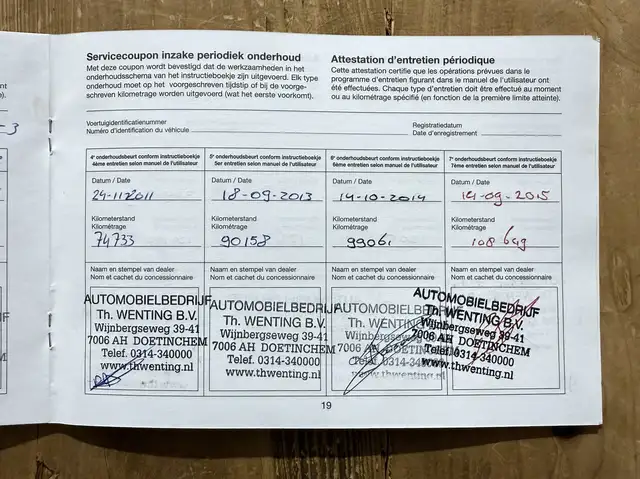 Servicecoupon inzake periodiek onderhoud
Met deze coupon wordt bevestigd dat de werkzaamheden in het
onderhoudsschema van het instructieboekje zijn uitgevoerd. Elk type
onderhoud moet op het voorgeschreven tijdstip of bij de voorge-
schreven kilometrage worden uitgevoerd (wat het eerste voorkomt).
Attestation d'entretien périodique
Cette attestation certifie que les opérations prévues dans le
programme d'entretien figurant dans le manuel de l'utilisateur ont
été effectuées. Chaque type d'entretien doit être effectué au moment
ou au kilométrage spécifié (en fonction de la première limite atteinte).
Voertuigidentificatienummer
Numéro d'identification du véhicule
Registratiedatum
Date d'enregistrement
4e onderhoudsbeurt conform instructieboekje
4ème entretien selon manuel de l'utilisateur
Datum / Date
24-11-2011
Kilometerstand
Kilométrage
74733
Naam en stempel van dealer
Nom et cachet du concessionnaire
AUTOMOBIELBEDRIJF
Th. WENTING B.V.
Wijnbergseweg 39-41
7006 AH DOETINCHEM
Telef. 0314-340000
www.thwenting.nl
5e onderhoudsbeurt conform instructieboekje
5er entretien selon manuel de l'utilisateur
Datum / Date
18-09-2013
Kilometerstand
Kilométrage
90158
Naam en stempel van dealer
Nom et cachet du concessionnaire
AUTOMOBIELBEDRIJF
Th. WENTING B.V.
Wijnbergseweg 39-41
7006 AH DOETINCHEM
Telef. 0314-340000
www.thwenting.nl
6e onderhoudsbeurt conform instructieboekje
6ème entretien selon manuel de l'utilisateur
Datum / Date
14-10-2014
Kilometerstand
Kilométrage
99061
Naam en stempel van dealer
Nom et cachet du concessionnaire
AUTOMOBIELBEDRIJF
Th. WENTING
Wijnbergseweg
7006 AH DOETIN
Telef. 0314-34
www.thwenting.nl
7e onderhoudsbeurt conform instructieboekje
7ème entretien selon manuel de l'utilisateur
Datum / Date
14-09-2015
Kilometerstand
Kilométrage
108 649
Naam en stempel van dealer
Nom et cachet du concessionnaire
AUTOMOBIELBEDRIJF
Th. WENTING B.V.
Wijnbergseweg 39-41
7006 AH DOETINCHEM
Telef. 0314-340000
www.thwenting.nl
19